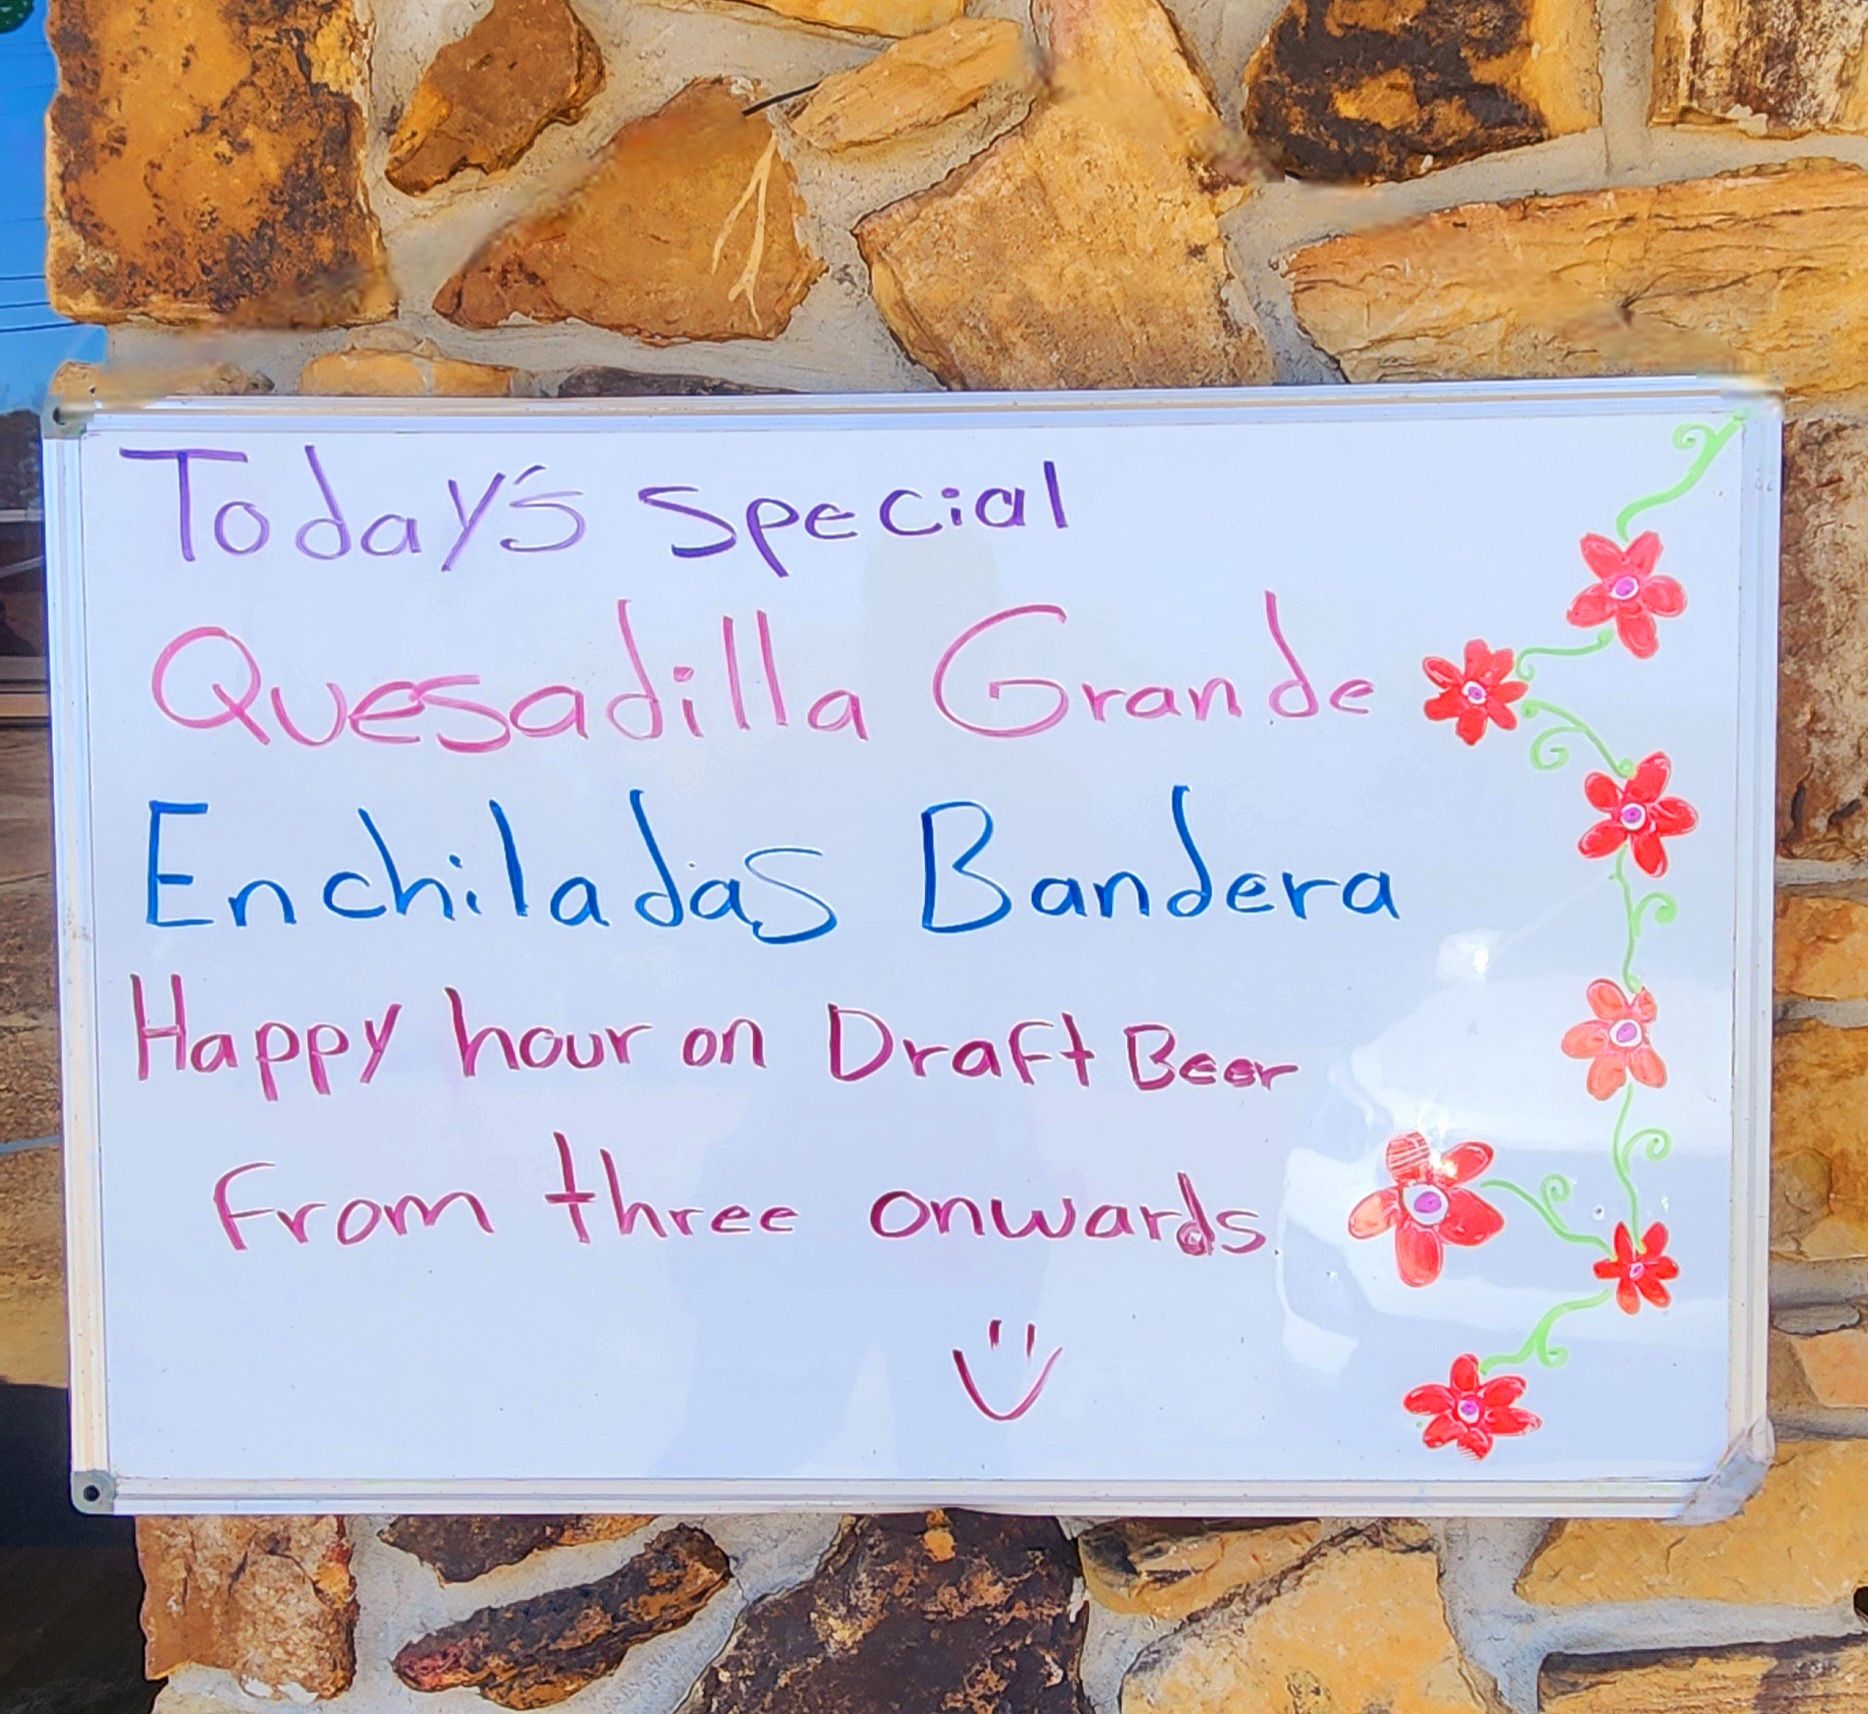 Today's special
Quesadilla Grande
Enchiladas Bandera
Happy hour on Draft Beer
From three onwards